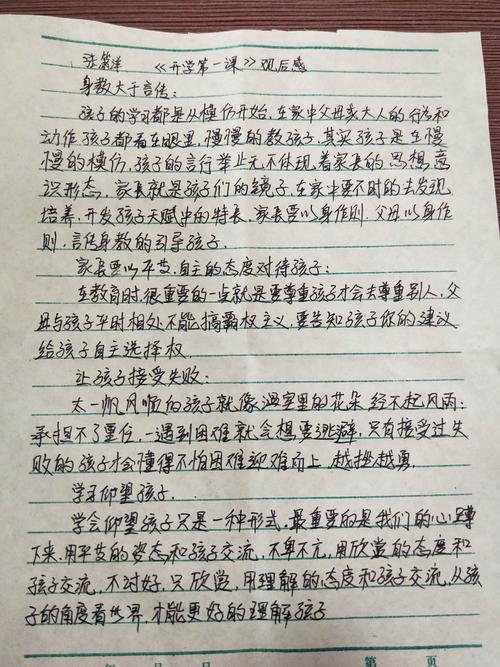 《开学第一课》观后感
身教大于言传：
孩子的学习都是从模仿开始，在家中父母亲大人的行为和
动作孩子都看在眼里，慢慢的教孩子。其实孩子是在慢
慢的模仿，孩子的言行举止无不体现着家长的思想，意
识形态，家长就是孩子们的镜子，在家中要不时的去发现
培养，开发孩子天赋中的特长，家长要以身作则，父母以身作
则，言传身教的引导孩子。
家长要以平等，自主的态度对待孩子：
在教育时，很重要的一点就是要尊重孩子才会去尊重别人，父
母与孩子平时相处不能搞霸权主义，要告知孩子你的建议
给孩子自主选择权。
让孩子接受失败：
太一帆风顺的孩子就像温室里的花朵 经不起风雨：
承担不了重任，一遇到困难就会想要逃避，只有接受过失
败的孩子才会懂得不怕困难迎难而上，越挫越勇。
学习仰望孩子。
学会仰望孩子只是一种形式，最重要的是我们的心蹲
下来，用平等的姿态和孩子交流，不卑不亢，用欣赏的态度和
孩子交流，不讨好，只欣赏，用理解的态度和孩子交流，从孩
子的角度看世界，才能更好的理解孩子
年 月 日 第 页